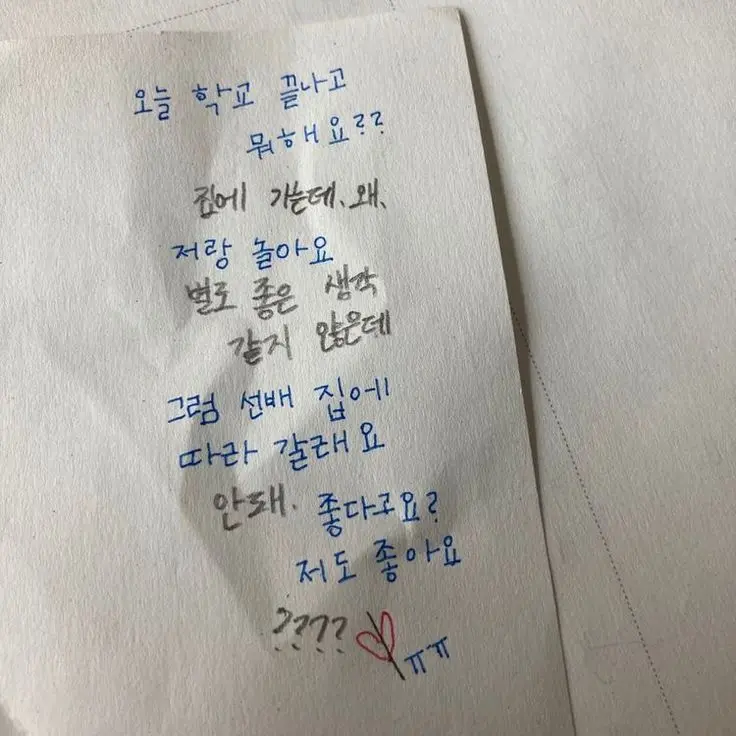 오늘 학교 끝나고
뭐해요??
집에 가는데. 왜.
저랑 놀아요
별로 좋은 생각
같지 않은데
그럼 선배 집에
따라 갈래요
안돼. 좋다고요?
저도 좋아요
???? ㅠㅠ